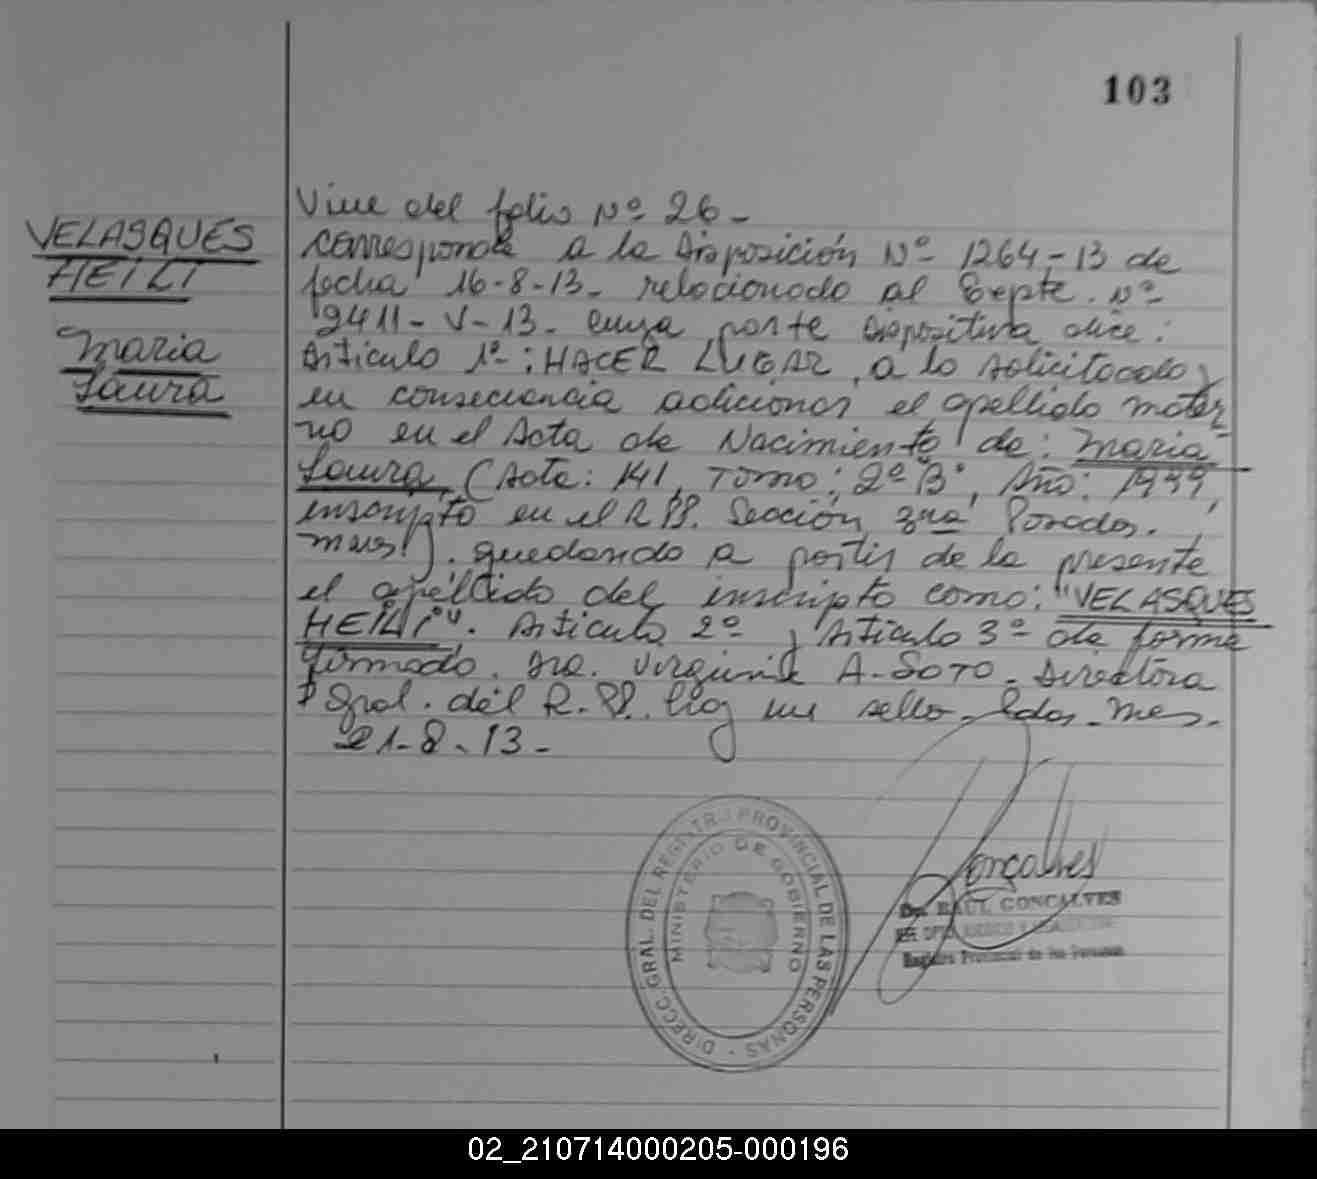 103
VELASQUES
HEILI
Maria
Laura
Viene del folio Nº 26 -
corresponde a la Disposición Nº 1264-13 de
fecha 16-8-13- relacionado al Expte. Nº
2411-V-13- cuya parte dispositiva dice:
Artículo 1º: HACER LUGAR, a lo solicitado y
en consecuencia adicionar el apellido mater
no en el Acta de Nacimiento de: Maria
Laura, (Acta: 141, Tomo: 2º B, Año: 1999,
inscripto en el R PP. Sección 3ra Posadas.
Mnes). quedando a partir de la presente
el apellido del inscripto como: "VELASQUES
HEILI". Artículo 2º y Artículo 3º de forma
firmado. Dra. Virginia A. SOTO - Directora
Gral. del R. PP. Hay un sello - Pdas. Mnes.
21-8-13-
DIRECC. GRAL. DEL REGISTRO PROVINCIAL DE LAS PERSONAS
MINISTERIO DE GOBIERNO
Gonçalves
Dr. RAUL GONCALVES
Registro Provincial de las Personas
02_210714000205-000196